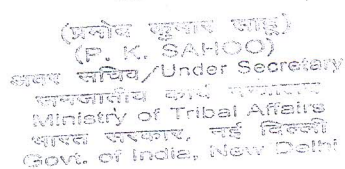 (प्रमोद कुमार साहू)
(P. K. SAHOO)
अवर सचिव/Under Secretary
जनजातीय कार्य मंत्रालय
Ministry of Tribal Affairs
भारत सरकार, नई दिल्ली
Govt. of India, New Delhi